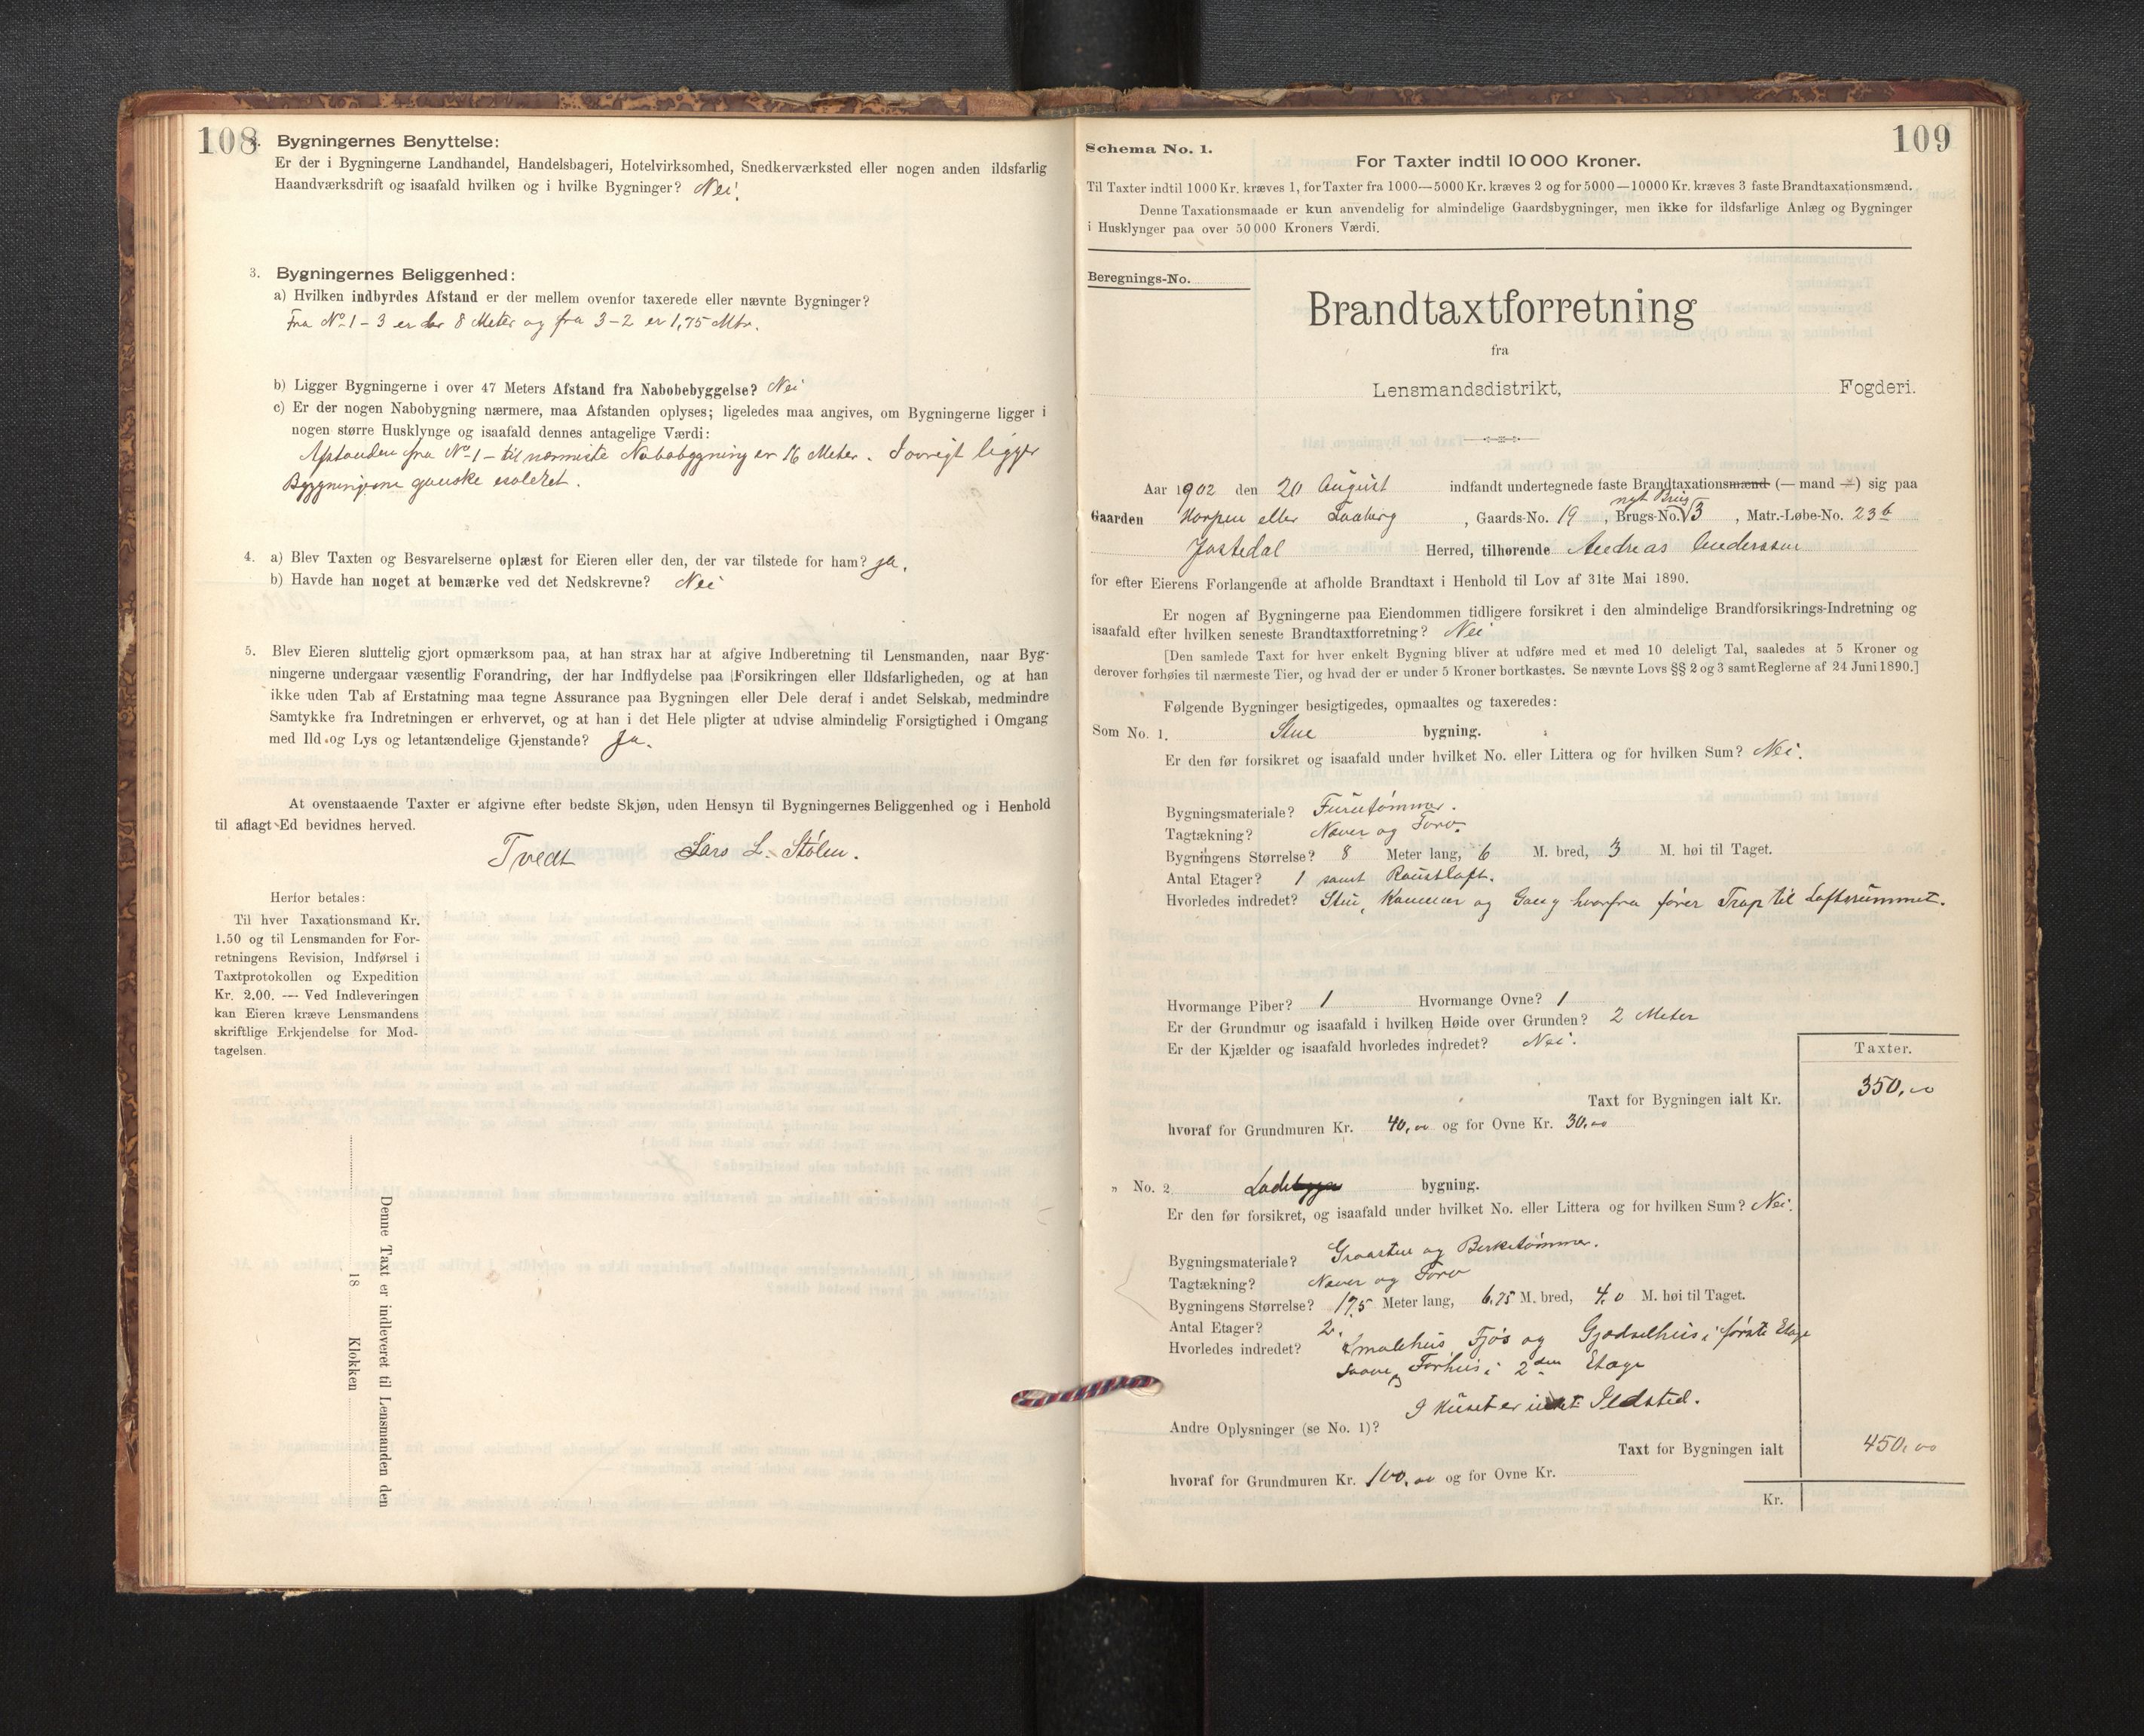 108
2. Bygningernes Benyttelse:
Er der i Bygningerne Landhandel, Handelsbageri, Hotelvirksomhed, Snedkerværksted eller nogen anden ildsfarlig
Haandværksdrift og isaafald hvilken og i hvilke Bygninger? Nei!
3. Bygningernes Beliggenhed:
a) Hvilken indbyrdes Afstand er der mellem ovenfor taxerede eller nævnte Bygninger?
Fra No 1 – 3 er der 8 Meter og fra 3 – 2 er 1,75 Mtr.
b) Ligger Bygningerne i over 47 Meters Afstand fra Nabobebyggelse? Nei
c) Er der nogen Nabobygning nærmere, maa Afstanden oplyses; ligeledes maa angives, om Bygningerne ligger i
nogen større Husklynge og isaafald dennes antagelige Værdi:
Afstanden fra No 1 – til nærmeste Nabobygning er 16 Meter. I øvrigt ligger
Bygningerne ganske isoleret.
4. a) Blev Taxten og Besvarelserne oplæst for Eieren eller den, der var tilstede for ham? ja.
b) Havde han noget at bemærke ved det Nedskrevne? Nei
5. Blev Eieren sluttelig gjort opmærksom paa, at han strax har at afgive Indberetning til Lensmanden, naar Byg-
ningerne undergaar væsentlig Forandring, der har Indflydelse paa Forsikringen eller Ildsfarligheden, og at han
ikke uden Tab af Erstatning maa tegne Assurance paa Bygningen eller Dele deraf i andet Selskab, medmindre
Samtykke fra Indretningen er erhvervet, og at han i det Hele pligter at udvise almindelig Forsigtighed i Omgang
med Ild og Lys og letantændelige Gjenstande? Ja.
At ovenstaaende Taxter er afgivne efter bedste Skjøn, uden Hensyn til Bygningernes Beliggenhed og i Henhold
til aflagt Ed bevidnes herved.
Tvedt Lars L. Stølen.
Herfor betales:
Til hver Taxationsmand Kr.
1.50 og til Lensmanden for For-
retningens Revision, Indførsel i
Taxtprotokollen og Expedition
Kr. 2.00. — Ved Indleveringen
kan Eieren kræve Lensmandens
skriftlige Erkjendelse for Mod-
tagelsen.
Denne Taxt er indleveret til Lensmanden den
18 Klokken
109
Schema No. 1.
For Taxter indtil 10 000 Kroner.
Til Taxter indtil 1000 Kr. kræves 1, for Taxter fra 1000—5000 Kr. kræves 2 og for 5000—10000 Kr. kræves 3 faste Brandtaxationsmænd.
Denne Taxationsmaade er kun anvendelig for almindelige Gaardsbygninger, men ikke for ildsfarlige Anlæg og Bygninger
i Husklynger paa over 50 000 Kroners Værdi.
Beregnings-No.
Brandtaxtforretning
fra
Lensmandsdistrikt, Fogderi.
Aar 1902 den 20 August indfandt undertegnede faste Brandtaxationsmænd (— mand —) sig paa
nyt Brug
Gaarden Horpen eller Faaberg, Gaards-No. 19, Brugs-No. 3, Matr.-Løbe-No. 23b
Jostedal Herred, tilhørende Andreas Anderssen
for efter Eierens Forlangende at afholde Brandtaxt i Henhold til Lov af 31te Mai 1890.
Er nogen af Bygningerne paa Eiendommen tidligere forsikret i den almindelige Brandforsikrings-Indretning og
isaafald efter hvilken seneste Brandtaxtforretning? Nei
[Den samlede Taxt for hver enkelt Bygning bliver at udføre med et med 10 deleligt Tal, saaledes at 5 Kroner og
derover forhøies til nærmeste Tier, og hvad der er under 5 Kroner bortkastes. Se nævnte Lovs §§ 2 og 3 samt Reglerne af 24 Juni 1890.]
Følgende Bygninger besigtigedes, opmaaltes og taxeredes:
Som No. 1. Stue bygning.
Er den før forsikret og isaafald under hvilket No. eller Littera og for hvilken Sum? Nei.
Bygningsmateriale? Furutømmer.
Tagtækning? Næver og Torv.
Bygningens Størrelse? 8 Meter lang, 6 M. bred, 3 M. høi til Taget.
Antal Etager? 1 samt Raustloft.
Hvorledes indredet? Stue, Kammer og Gang hvorfra fører Trap til Loftsrummet.
Hvormange Piber? 1 Hvormange Ovne? 1
Er der Grundmur og isaafald i hvilken Høide over Grunden? 2 Meter
Er der Kjælder og isaafald hvorledes indredet? Nei.
Taxter.
Taxt for Bygningen ialt Kr. 350,00
hvoraf for Grundmuren Kr. 40,00 og for Ovne Kr. 30,00
" No. 2 Lade bygning.
Er den før forsikret, og isaafald under hvilket No. eller Littera og for hvilken Sum? Nei.
Bygningsmateriale? Graasten og Birketømmer.
Tagtækning? Næver og Torv
Bygningens Størrelse? 17,5 Meter lang, 6,75 M. bred, 4,0 M. høi til Taget.
Antal Etager? 2.
Hvorledes indredet? Smalehus, Fjøs og Gjødselhus i første Etage
Laave og Forhus i 2den Etage
I Huset er intet Ildsted.
Andre Oplysninger (se No. 1)?
Taxt for Bygningen ialt 450,00
hvoraf for Grundmuren Kr. 100,00 og for Ovne Kr.
Kr.